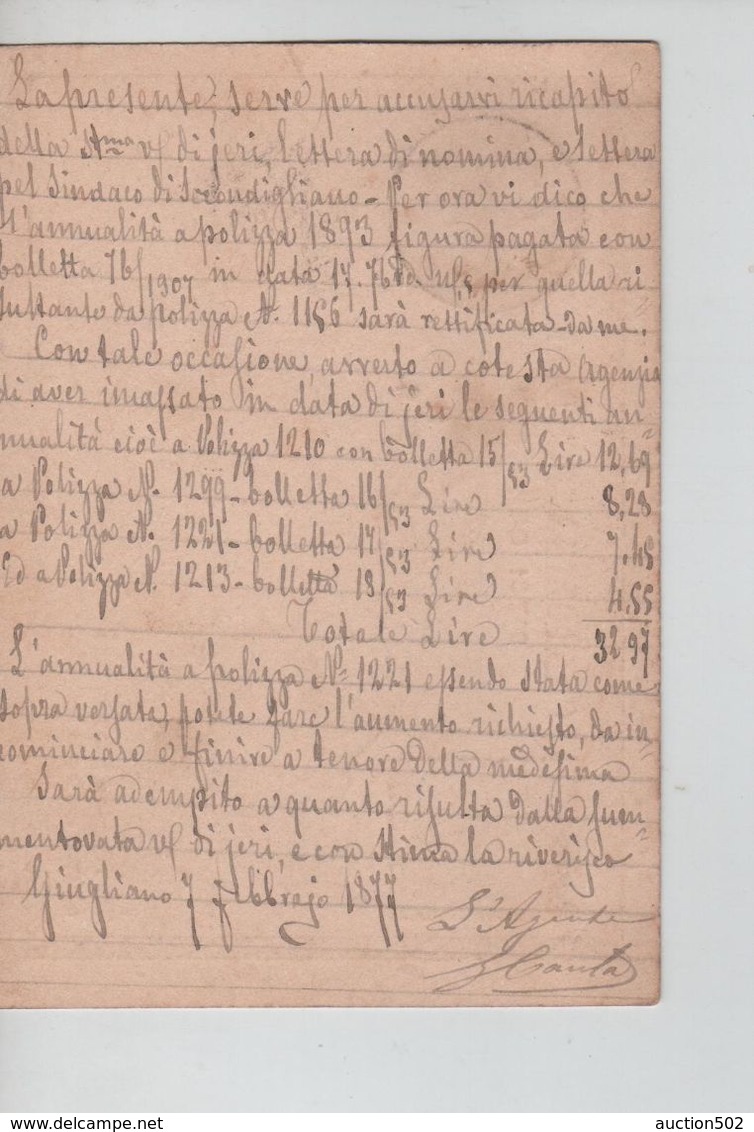 La presente, serve per accusarvi ricapito
della Sma vs/ di jeri, lettera di nomina, e lettera
pel Sindaco di Secondigliano - Per ora vi dico che
l'annualità a polizza 1893 figura pagata con
bolletta 76/1907 in data 17. 76 per quella ri=
sultante da polizza N. 1156 sarà rettificata da me.
Con tale occasione, avverto a cotesta Agenzia
di aver incassato in data di jeri le seguenti an=
nualità cioè a Polizza 1210 con bolletta 15/53 Lire 12,69
a Polizza N. 1299 - bolletta 16/53 Lire 8,28
a Polizza N. 1221 - bolletta 17/53 Lire 7.45
Ed a Polizza N. 1213 - bolletta 18/53 Lire 4.55
Totale Lire 32 97
L'annualità a polizza N. 1221 essendo stata come
sopra versata, potete fare l'aumento richiesto, da in=
cominciare e finire a tenore della medesima
Sarà adempito a quanto risulta dalla sum=
mentovata vs/ di jeri, e con stima la riverisco
Giugliano 7 febbrajo 1877
L'Agente
auction502